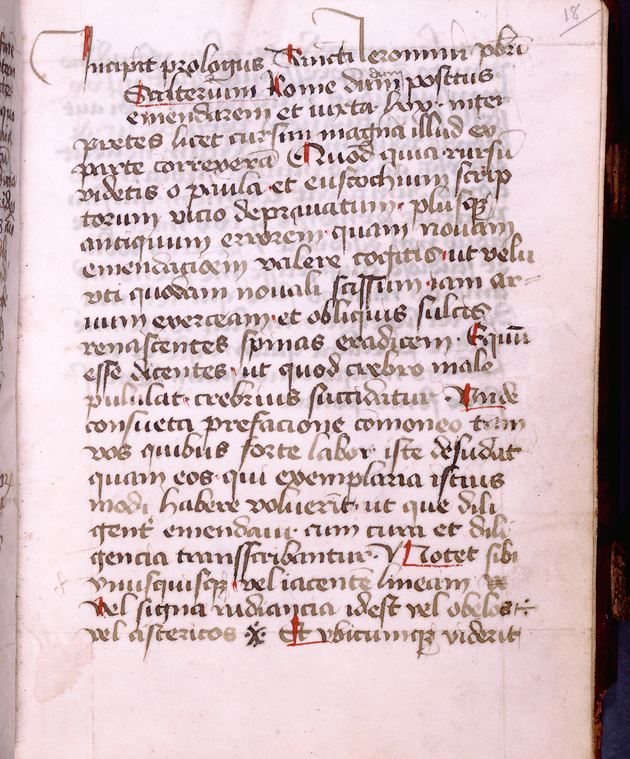 18
Incipit prologus Sancti Ieronimi pbri
Psalterium Rome dudum positus
emendarem et iuxta lxx inter
pretes licet cursim magna illud ex
parte correxerā Quod quia rursū
videtis o paula et eustochium scrip
torum vicio deprauatum plusqꝫ
antiquum errorem quam nouam
emendacionem valere cogitis ut velu
vti quodam nouali scissum iam ar
uum exerceam et obliquis sulcis
renascentes spinas eradicem Equū
esse dicentes ut quod crebro male
pululat crebrius succidatur Unde
consueta prefacione comoneo tam
vos quibus forte labor iste desudat
quam eos qui exemplaria istius
modi habere voluerīt ut que dili
gent emendaui cum cura et dili
gencia transscribantur Notet sibi
vnusquisqꝫ vel iacentē lineam
vel signa radiancia idest vel obelos
vel astericos ※ Et vbicumqꝫ viderit